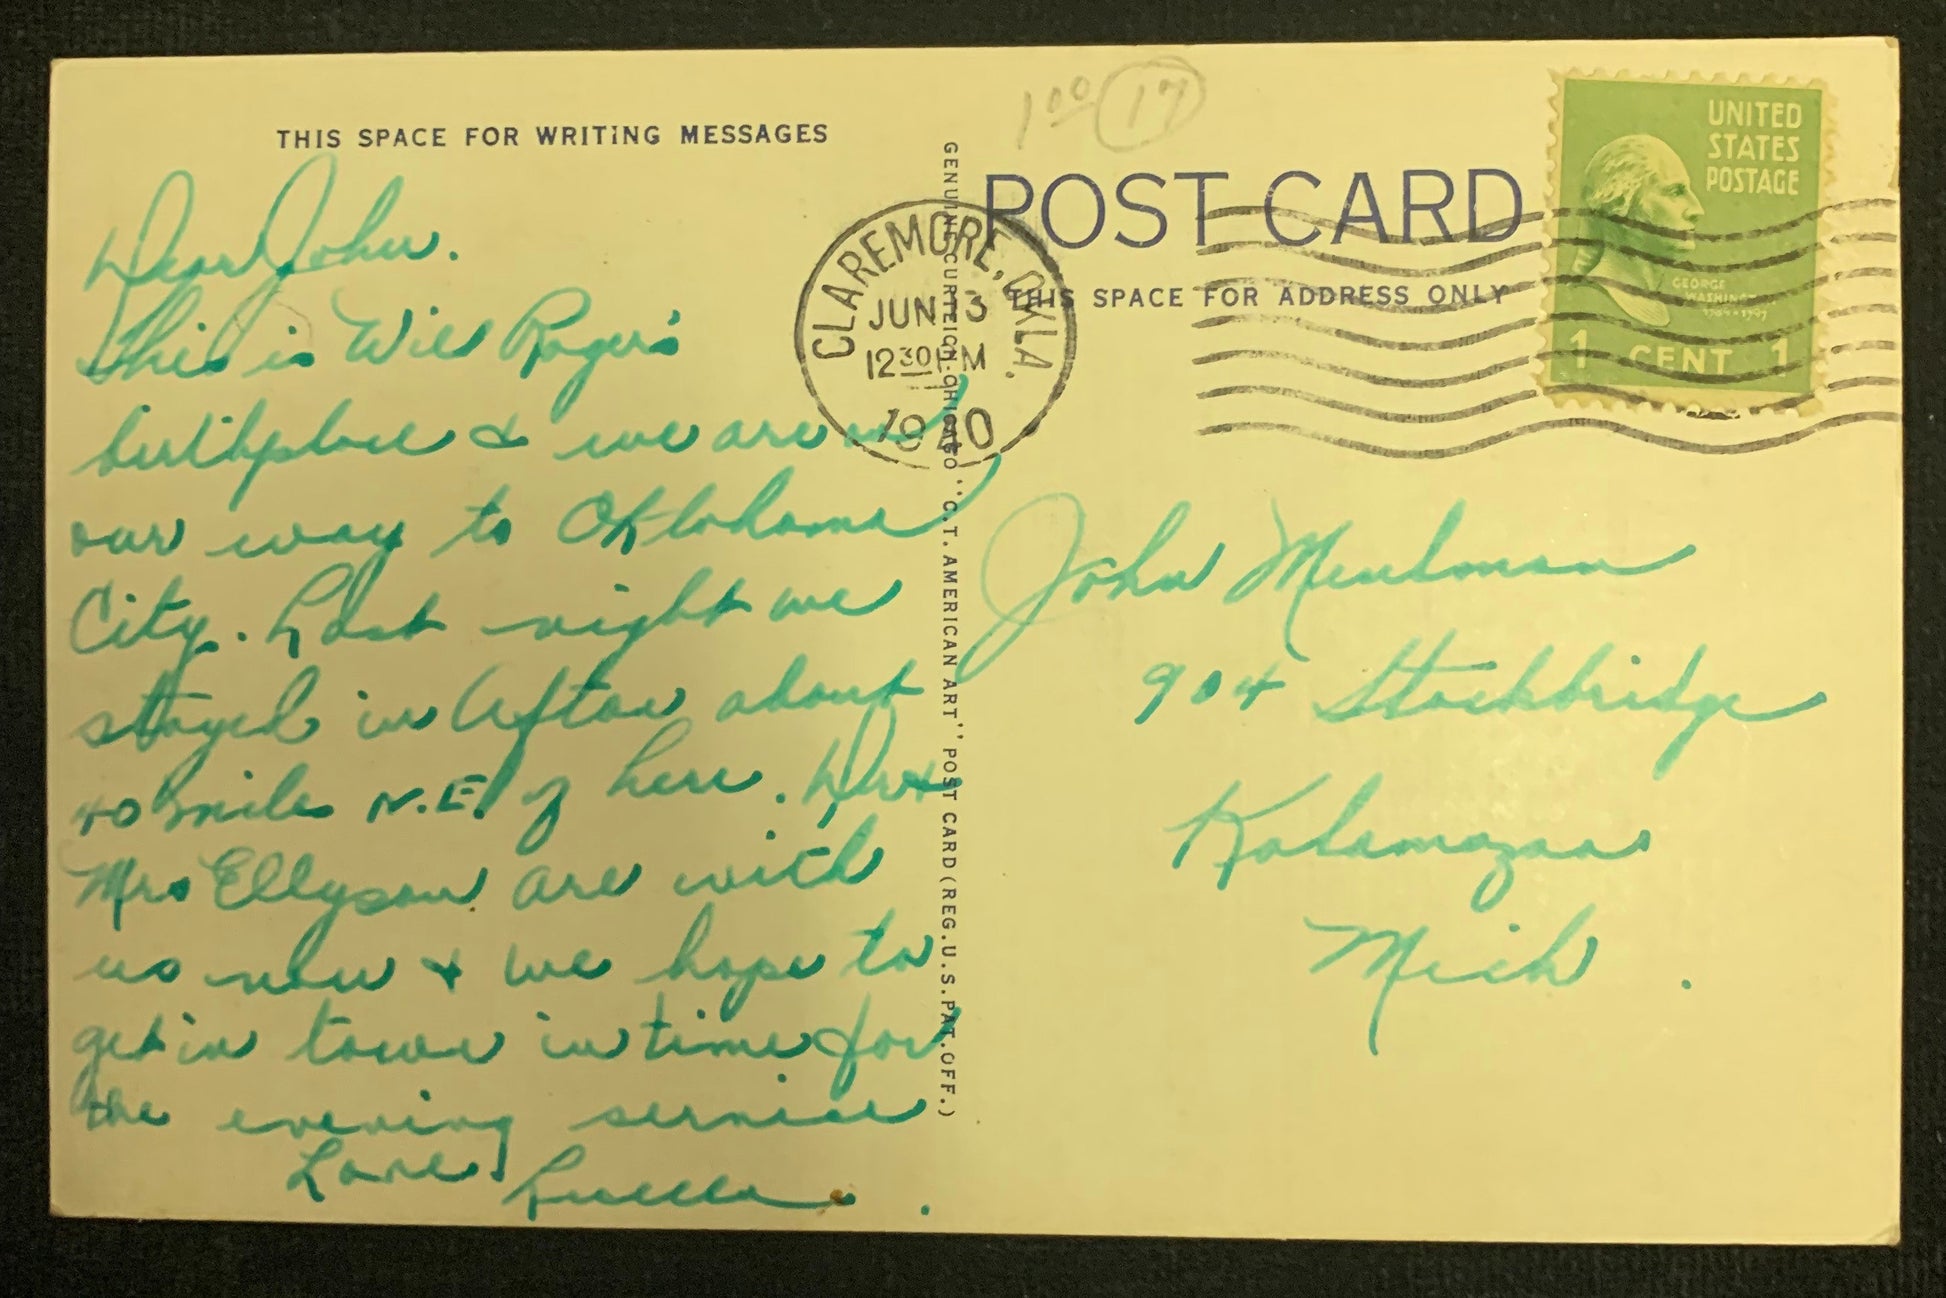 THIS SPACE FOR WRITING MESSAGES
Dear John.
This is Will Rogers'
birthplace & we are on
our way to Oklahoma
City. Last night we
stayed in Afton about
40 miles N.E. of here. Dr &
Mrs Ellyson are with
us now & we hope to
get in town in time for
the evening service
Love, Luella.
GENUINE CURTEICH-CHICAGO "C.T. AMERICAN ART" POST CARD (REG. U.S. PAT. OFF.)
1 00 17
POST CARD
THIS SPACE FOR ADDRESS ONLY
CLAREMORE, OKLA.
JUN 3
12 30 PM
1940
UNITED
STATES
POSTAGE
GEORGE
WASHINGTON
1 CENT 1
John Meulman
904 Stockbridge
Kalamazoo
Mich.